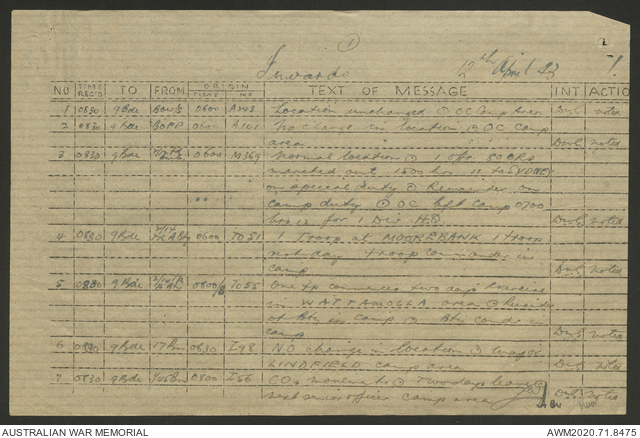 ①
Inwards 12th April 43 1.
NO TIME REC'D TO FROM ORIGIN TIME NO. TEXT OF MESSAGE INT ACTION
1 0830 9 Bde 0600 A243 Location unchanged ⊙ OC Camp Area noted
2 0830 9 Bde 0600 No change in location ⊙ OC Camp
area noted
3 0830 9 Bde 0600 M369 Normal location ⊙ 1 Offr 80 ORs
marched out 1500 hrs 11 to SYDNEY
on special duty ⊙ Remainder on
camp duty ⊙ OC left camp 0700
hrs 12 for 1 Div HQ noted
4 0830 9 Bde 0600 TO51 1 Troop at MOOREBANK 1 troop
rest day troop commander in
camp noted
5 0830 9 Bde 0800 TO55 One tp commences two days exercise
in WATTAMOLLA area ⊙ Remainder
of Bty in camp ⊙ Bty Comdr in
camp noted
6 0830 9 Bde 17 Bn 0630 I98 No change in location ⊙
LINDFIELD camp area noted
7 0830 9 Bde 0800 I56 COs ⊙ Two days leave
next senior officer camp area noted
AUSTRALIAN WAR MEMORIAL AWM2020.71.8475